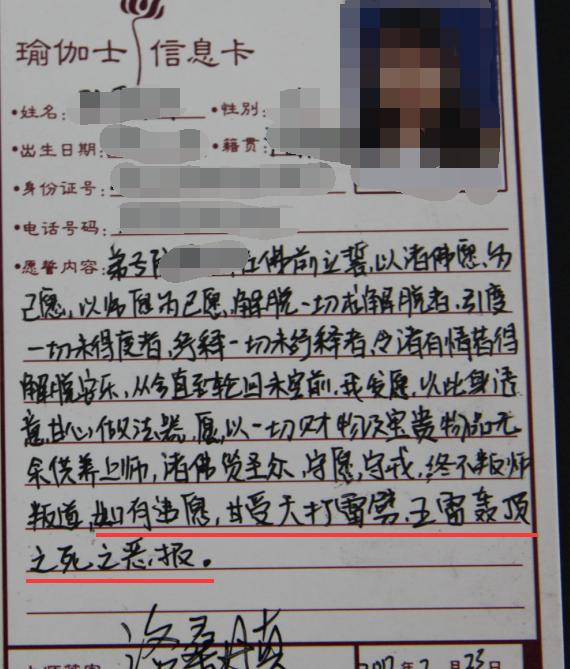 瑜伽士 信息卡
•姓名: •性别:
•出生日期: •籍贯:
•身份证号:
•电话号码:
•愿誓内容: 弟子 在佛前立誓,以诸佛愿为
己愿,以师愿为己愿,解脱一切未解脱者,引度
一切未得度者,终释一切未终释者,令诸有情皆得
解脱安乐,从今直至轮回未空前,我发愿,以此身语
意,甘心做法器,愿,以一切财物及宝贵物品无
余供养上师,诸佛贤圣尔,守愿,守戒,终不叛师
叛道,如有违愿,甘受天打雷劈,五雷轰顶
之死之恶报。
年2月23日